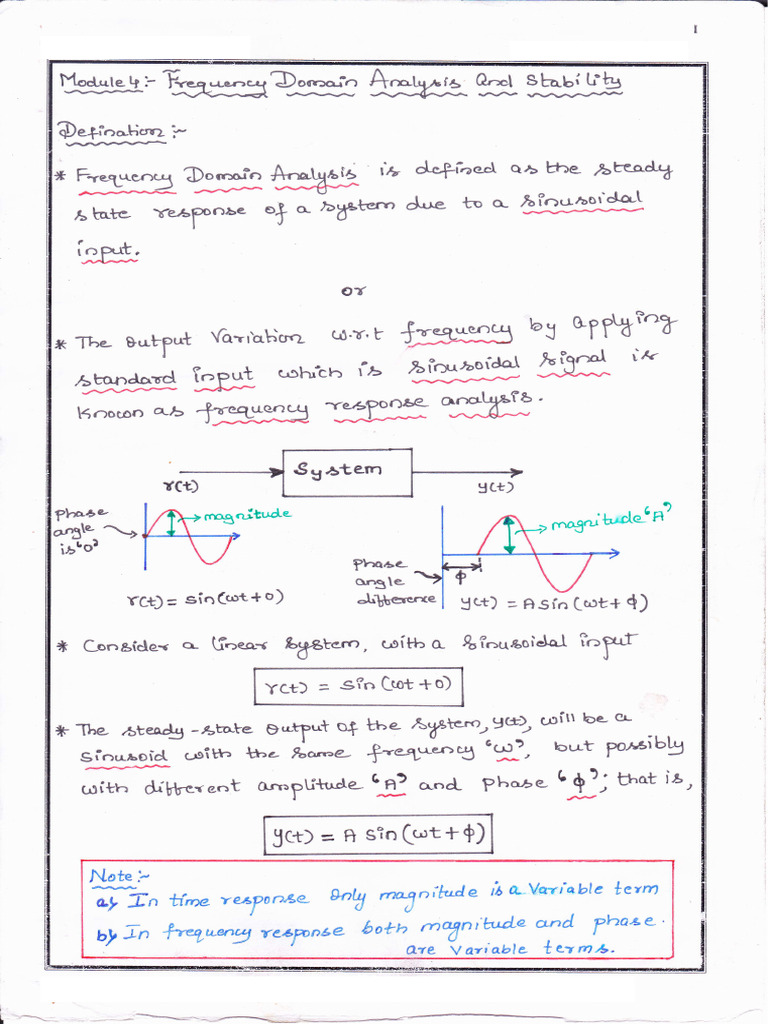 I
Module 4:- Frequency Domain Analysis and Stability
Defination:-
* Frequency Domain Analysis is defined as the steady
state response of a system due to a sinusoidal
input.
or
* The output variation w.r.t frequency by applying
standard input which is sinusoidal signal is
known as frequency response analysis.
r(t) System y(t)
Phase angle is '0'
magnitude
r(t) = sin(ωt+0)
magnitude 'A'
Phase angle difference
ϕ
y(t) = A sin(ωt + ϕ)
* Consider a linear system, with a sinusoidal input
r(t) = sin(ωt+0)
* The steady-state output of the system, y(t), will be a
sinusoid with the same frequency 'ω', but possibly
with different amplitude 'A' and phase 'ϕ'; that is,
y(t) = A sin(ωt + ϕ)
Note:-
a) In time response only magnitude is a variable term
b) In frequency response both magnitude and phase.
are variable terms.